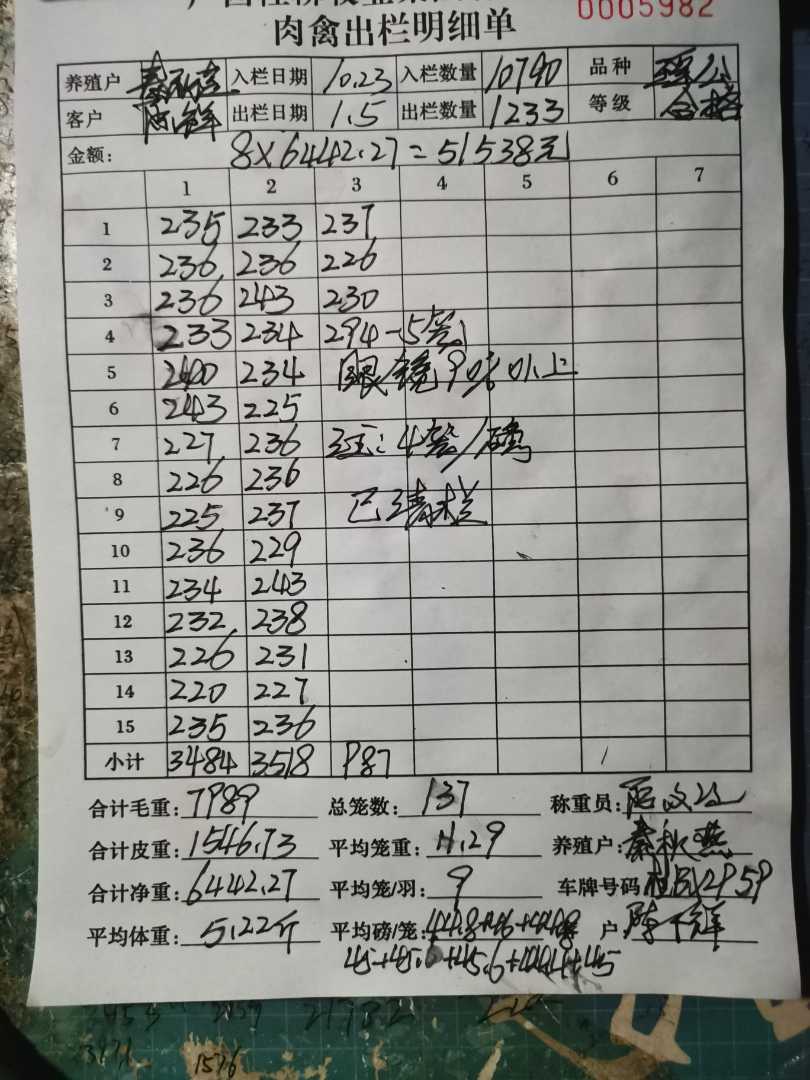 0005982
肉禽出栏明细单
养殖户 秦秋燕 入栏日期 10.23 入栏数量 10790 品种 瑶公
客户 陈辉 出栏日期 1.5 出栏数量 1233 等级 合格
金额: 8×6442.27=51538元
1 2 3 4 5 6 7
1 235 233 237
2 236 236 226
3 236 243 230
4 233 234 294-5笼
5 240 234
6 243 225
7 227 236 注:4笼/磅
8 226 236
9 225 237 已清栏
10 236 229
11 234 243
12 232 238
13 226 231
14 220 227
15 235 236
小计 3484 3518 987
合计毛重: 7989 总笼数: 137 称重员:
合计皮重: 1546.73 平均笼重: 11.29 养殖户: 秦秋燕
合计净重: 6442.27 平均笼/羽: 9 车牌号码
平均体重: 5.22斤 平均磅/笼: 44.8+46+44.8 户:
45+45.6+45.6+44.4+45